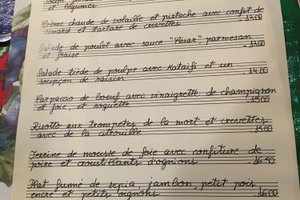 et légumes
Crème chaude de volaille et pistache avec confit de
canard et tartare de crevettes 13.00
Salade de poulet avec sauce "César" parmesan
et fraise 13.00
Salade tiède de poulpe avec Kataifi et un
soupçon de raisin 14.00
Carpaccio de boeuf avec vinaigrette de champignon
et foie et roquette 15.00
Risotto aux trompettes de la mort et crevettes
avec de la citrouille 15.00
Terrine de mousse de foie avec confiture de
poire et croustillants d'oignons 16.50
Plat fumé de sepia, jambon, petit pois
encre et petits oignons 16.00